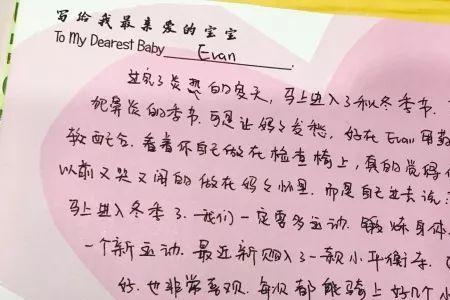 写给我最亲爱的宝宝
To My Dearest Baby Evan .
过完了炎热的夏天，马上进入了秋冬季节.
犯鼻炎的季节. 可是让妈妈发愁，好在Evan用药
较配合. 看着你自己做在检查椅上，真的觉得
以前又哭又闹的做在妈妈怀里. 而是自己过去说:
马上进入冬季了. 我们一定要多运动. 锻炼身体.
一个新运动. 最近新购入了一款小平衡车.
好. 也非常喜欢. 每次都能骑上好几个小